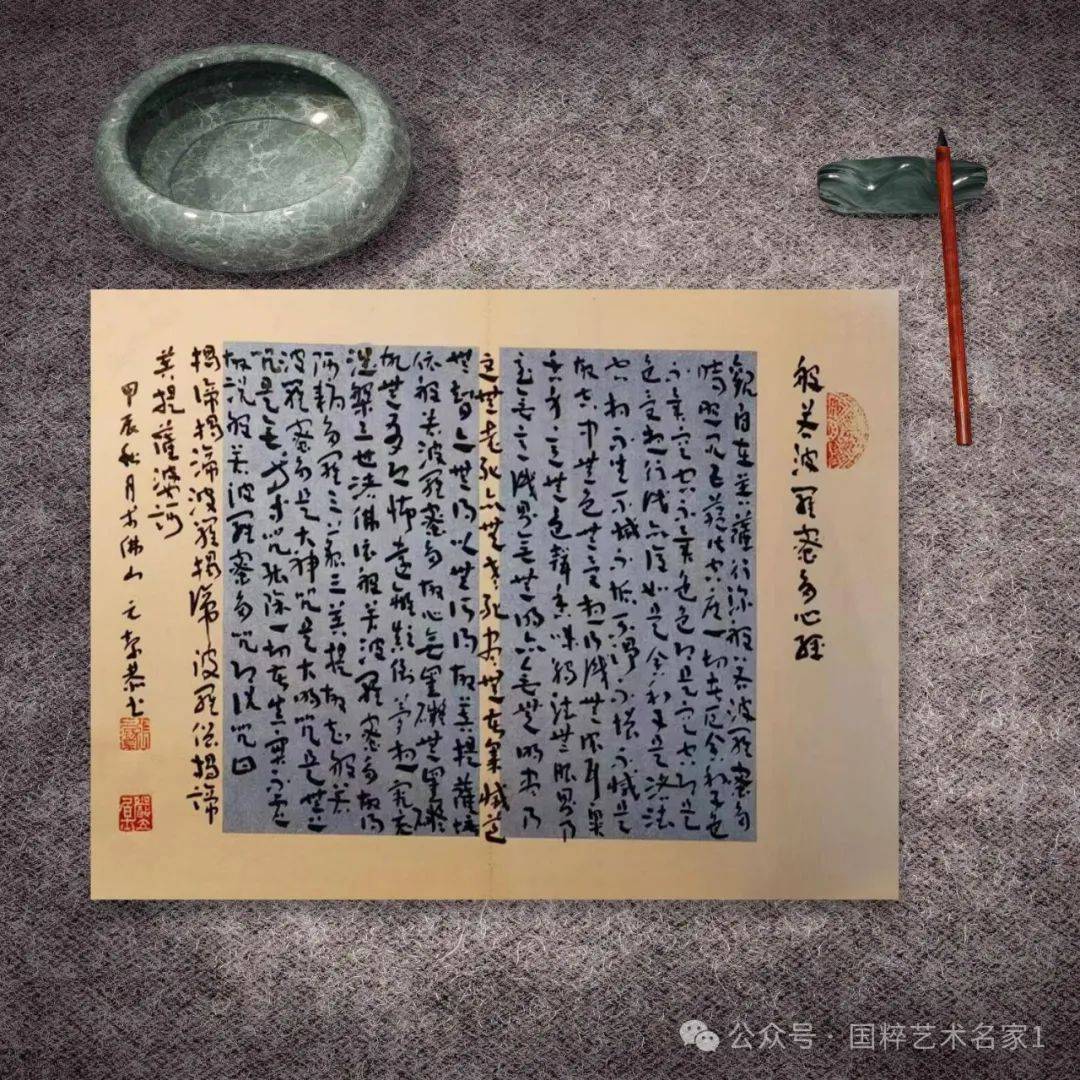 般若波羅蜜多心經
觀自在菩薩行深般若波羅蜜多
時照見五蘊皆空度一切苦厄舍利子色
不異空空不異色色即是空空即是
色受想行識亦復如是舍利子是諸法
空相不生不滅不垢不淨不增不減是
故空中無色無受想行識無眼耳鼻
舌身意無色聲香味觸法無眼界乃
至無意識界無無明亦無無明盡乃
至無老死亦無老死盡無苦集滅道
無智亦無得以無所得故菩提薩埵
依般若波羅蜜多故心無罣礙無罣礙
故無有恐怖遠離顛倒夢想究竟
涅槃三世諸佛依般若波羅蜜多故得
阿耨多羅三藐三菩提故知般若
波羅蜜多是大神咒是大明咒是無上
咒是無等等咒能除一切苦真實不虛
故說般若波羅蜜多咒即說咒曰
揭諦揭諦波羅揭諦波羅僧揭諦
菩提薩婆訶
甲辰秋月於佛山 元
公众号 · 国粹艺术名家1